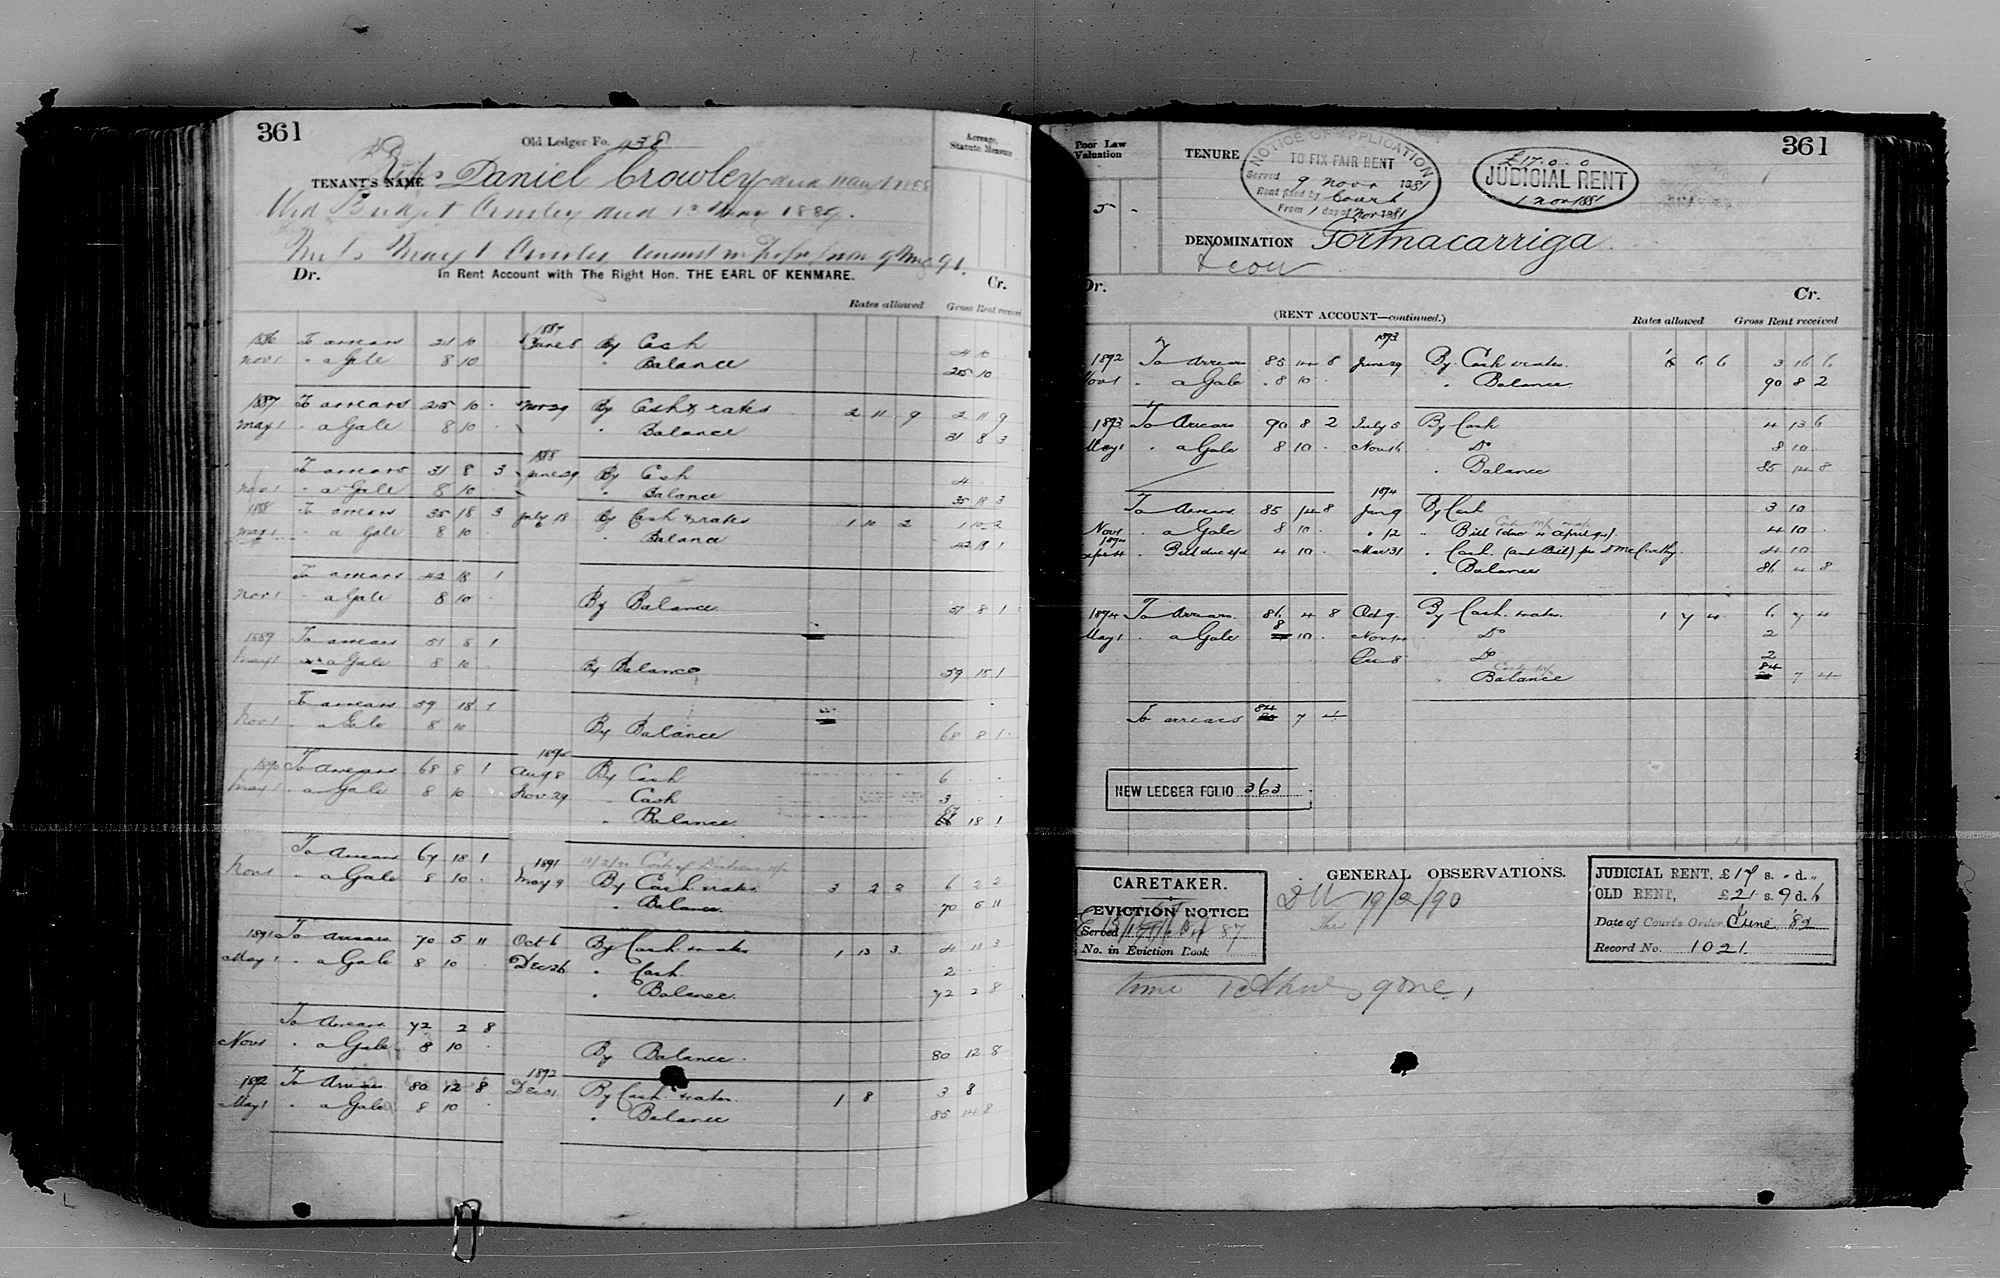 361
Old Ledger Fo. 438
Acreage, Statute Measure
TENANT'S NAME Reps Daniel Crowley died
Wid Bridget Crowley died 1889.
Crowley tenant in 91.
Dr. In Rent Account with The Right Hon. THE EARL OF KENMARE. Cr.
Rates allowed Gross Rent received
1886 To arrears 21 10 1887 June 8 By Cash 4 10
Nov 1 " a Gale 8 10 " Balance 25 10
1887 To arrears 25 10 - Nov 29 By Cash & rates 2 11 9 2 11 9
May 1 " a Gale 8 10 " Balance 31 8 3
To arrears 31 8 3 1888 June 29 By Cash 4
Nov 1 " a Gale 8 10 " Balance 35 18 3
1888 To arrears 35 18 3 July 18 By Cash & rates 1 10 2 1 10 2
May 1 " a Gale 8 10 " Balance 42 18 1
To arrears 42 18 1
Nov 1 " a Gale 8 10 By Balance 51 8 1
1889 To arrears 51 8 1
May 1 " a Gale 8 10 By Balance 59 18 1
To arrears 59 18 1
Nov 1 " a Gale 8 10 By Balance 68 8 1
1890 To arrears 68 8 1 1890 Aug 8 By Cash 6
May 1 " a Gale 8 10 Nov 29 " Cash 3
" Balance 67 18 1
To Arrears 67 18 1
Nov 1 " a Gale 8 10 1891 May 9 By Cash & rates 3 2 2 6 2 2
" Balance 70 5 11
1891 To Arrears 70 5 11 Oct 6 By Cash & rates 1 13 3 4 13 3
May 1 " a Gale 8 10 Dec 26 " Cash 2
" Balance 72 2 8
To Arrears 72 2 8
Nov 1 " a Gale 8 10 By Balance 80 12 8
1892 To Arrears 80 12 8 1892 Dec 31 By Cash & rates 1 8 3 8
May 1 " a Gale 8 10 " Balance 85 14 8
361
Poor Law Valuation
5 -
TENURE
NOTICE OF APPLICATION
TO FIX FAIR RENT
Served 9 Novr 1881
Rent fixed by Court
From 1 day of Nov 1881
£17.0.0
JUDICIAL RENT
1 Nov 1881
DENOMINATION Tormacarriga
Dr. Cr.
(RENT ACCOUNT—continued.) Rates allowed Gross Rent received
1892 To Arrears 85 14 8 1893 June 29 By Cash & rates. 6 6 3 16 6
Nov 1 " a Gale 8 10 " Balance 90 8 2
1893 To Arrears 90 8 2 July 5 By Cash 4 13 6
May 1 " a Gale 8 10 Nov 16 " Do 8 10
" Balance 85 14 8
To Arrears 85 14 8 1894 Jan 9 By Cash 3 10
Nov 1 " a Gale 8 10 " 12 " Bill (due 4 April 94). 4 10
1894 Apr 4 " Bill due 4/4 4 10 Mar 31 " Cash (and Bill) per D McCarthy. 4 10
" Balance 86 4 8
1894 To Arrears 86 4 8 Oct 9 By Cash & rates 1 7 4 6 7 4
May 1 " a Gale 8 10 Nov 14 " Do 2
Dec 8 " Do 2
" Balance 84 7 4
To arrears 84 7 4
NEW LEDGER FOLIO 363
GENERAL OBSERVATIONS.
CARETAKER.
EVICTION NOTICE
Served 87
No. in Eviction Book
19/2/90
JUDICIAL RENT, £17 s. - d. "
OLD RENT, £21 s. 9 d. 6
Date of Court's Order June '82
Record No. 1021.
gone,